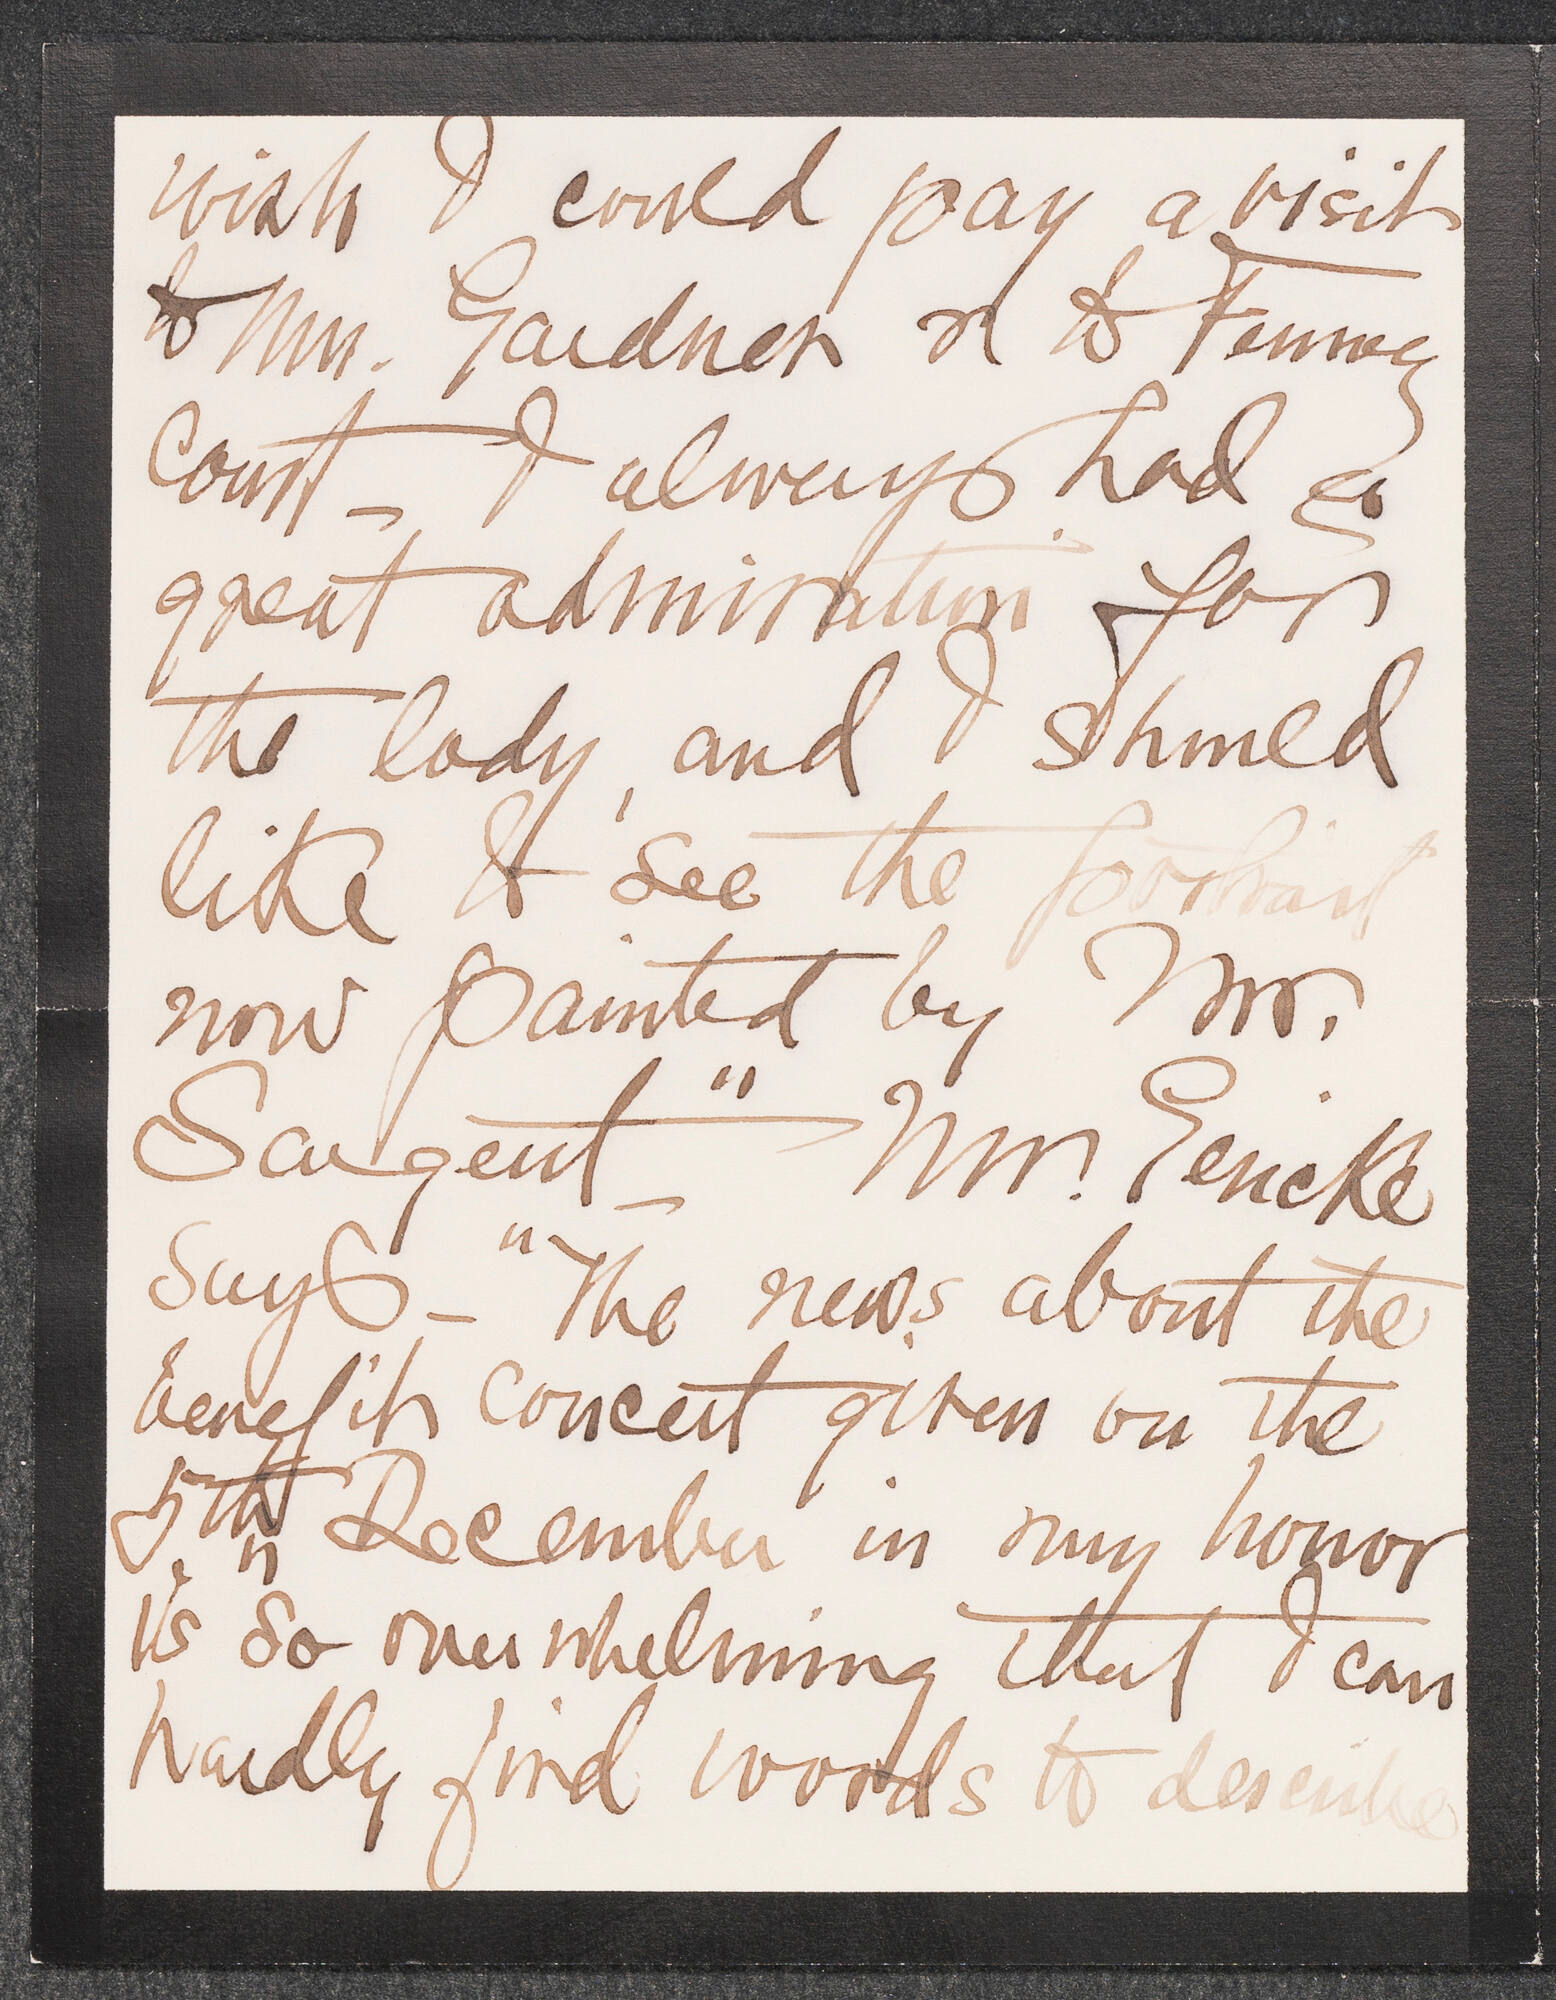 wish I could pay a visit
to Mrs. Gardner or to Fenway
Court – I always had a
great admiration for
the lady, and I should
like to see the portrait
now painted by Mr.
Sargent" – Mr. Gericke
says – "The news about the
benefit concert given on the
5th December in my honor
is so overwhelming that I can
hardly find words to describe